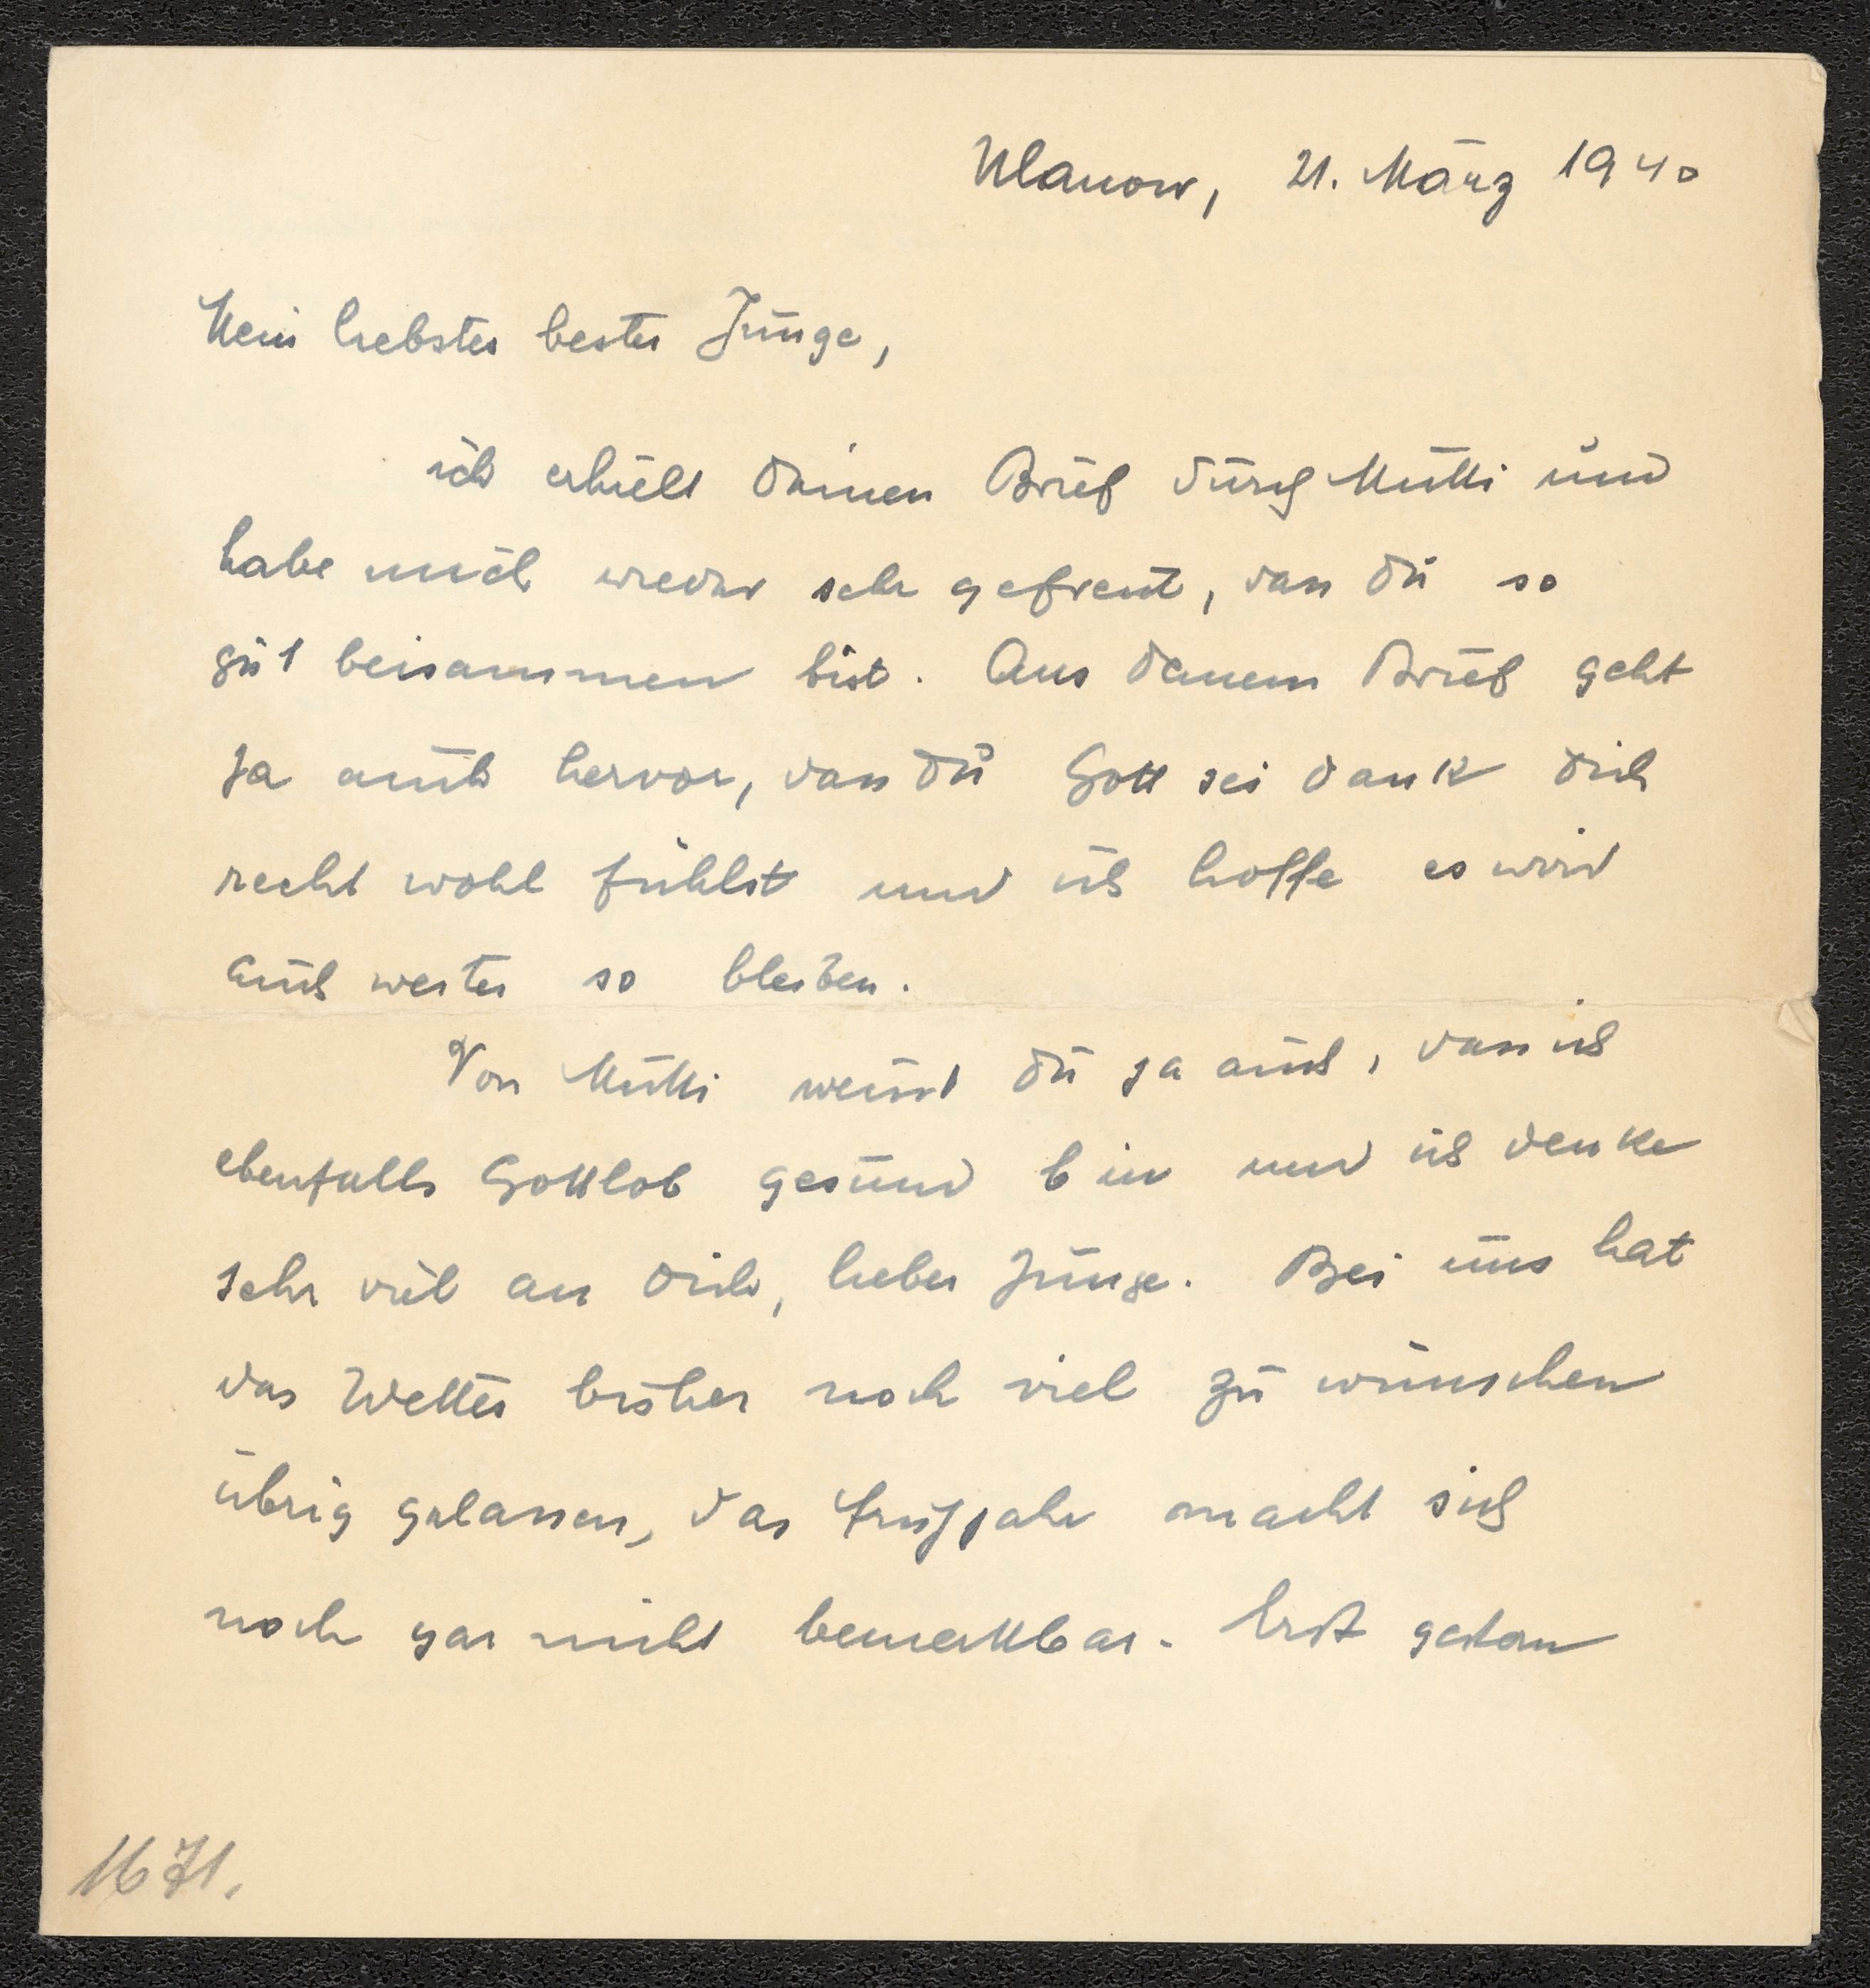 Ulanow, 21. März 1940
Mein liebster bester Junge,
ich erhielt Deinen Brief durch Mutti und
habe mich wieder sehr gefreut, dass Du so
gut beisammen bist. Aus Deinem Brief geht
ja auch hervor, dass Du Gott sei dank Dich
recht wohl fühlst und ich hoffe es wird
auch weiter so bleiben.
Von Mutti weisst Du ja auch, dass ich
ebenfalls Gottlob gesund bin und ich denke
sehr viel an Dich, lieber Junge. Bei uns hat
das Wetter bisher noch viel zu wünschen
übrig gelassen, das Frühjahr macht sich
noch gar nicht bemerkbar. Erst gestern
1671.